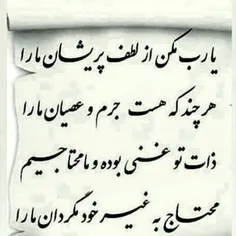 یا رب مکن از لطف پریشان ما را
هر چند که هست جرم و عصیان ما را
ذات تو غنی بوده و ما محتاجیم
محتاج به غیر خود مگردان ما را